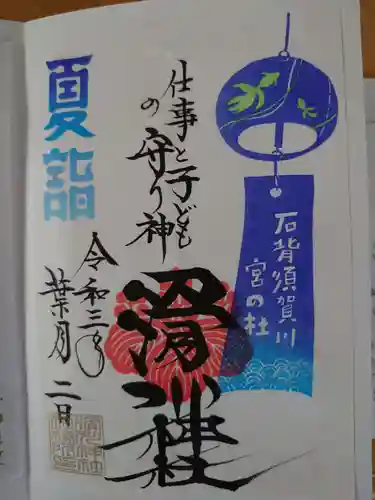 石背須賀川
宮の杜
仕事と子ども
の守り神
滑川神社
夏詣
令和三年
葉月 二日